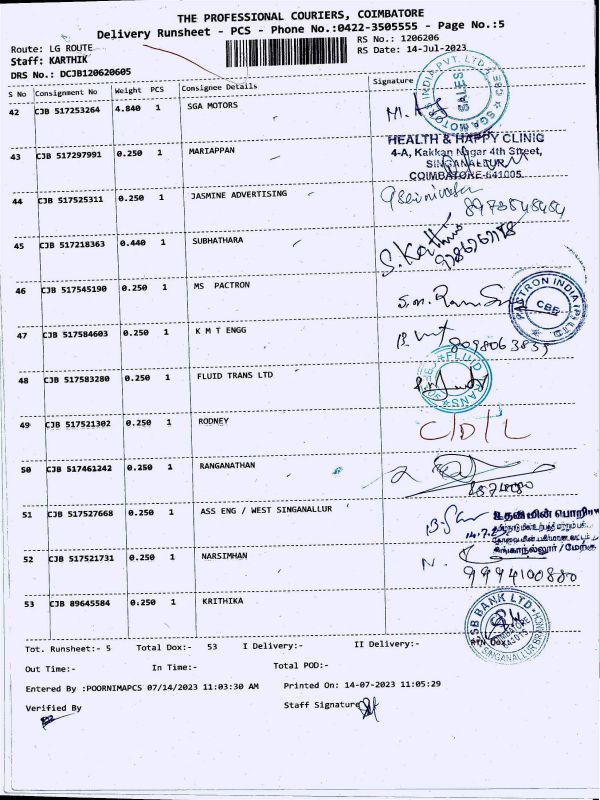 THE PROFESSIONAL COURIERS, COIMBATORE
Delivery Runsheet - PCS - Phone No.:0422-3505555 - Page No.:5
Route: LG ROUTE
RS No.: 1206206
Staff: KARTHIK
RS Date: 14-Jul-2023
DRS No.: DCJB120620605
S No Consignment No Weight PCS Consignee Details Signature
42 CJB 517253264 4.840 1 SGA MOTORS
SGA MOTORS INDIA PVT. LTD. CBE
SALES
HEALTH & HAPPY CLINIC
43 CJB 517297991 0.250 1 MARIAPPAN 4-A, Kakkan Nagar 4th Street,
SINGANALLUR
COIMBATORE-641005
44 CJB 517525311 0.250 1 JASMINE ADVERTISING
45 CJB 517218363 0.440 1 SUBHATHARA S. Karthi
46 CJB 517545190 0.250 1 MS PACTRON
INDIA (P) LTD.
CBE
47 CJB 517584603 0.250 1 K M T ENGG
48 CJB 517583280 0.250 1 FLUID TRANS LTD FLUID TRANS
49 CJB 517521302 0.250 1 RODNEY C/D/L
50 CJB 517461242 0.250 1 RANGANATHAN
51 CJB 517527668 0.250 1 ASS ENG / WEST SINGANALLUR
சிங்காநல்லூர் / மேற்கு
52 CJB 517521731 0.250 1 NARSIMHAN N.
9994100880
53 CJB 89645584 0.250 1 KRITHIKA
CSB BANK LTD
SINGANALLUR BRANCH
Tot. Runsheet:- 5 Total Dox:- 53 I Delivery:- II Delivery:- RTN Dox:
Out Time:- In Time:- Total POD:-
Entered By :POORNIMAPCS 07/14/2023 11:03:30 AM Printed On: 14-07-2023 11:05:29
Verified By Staff Signature